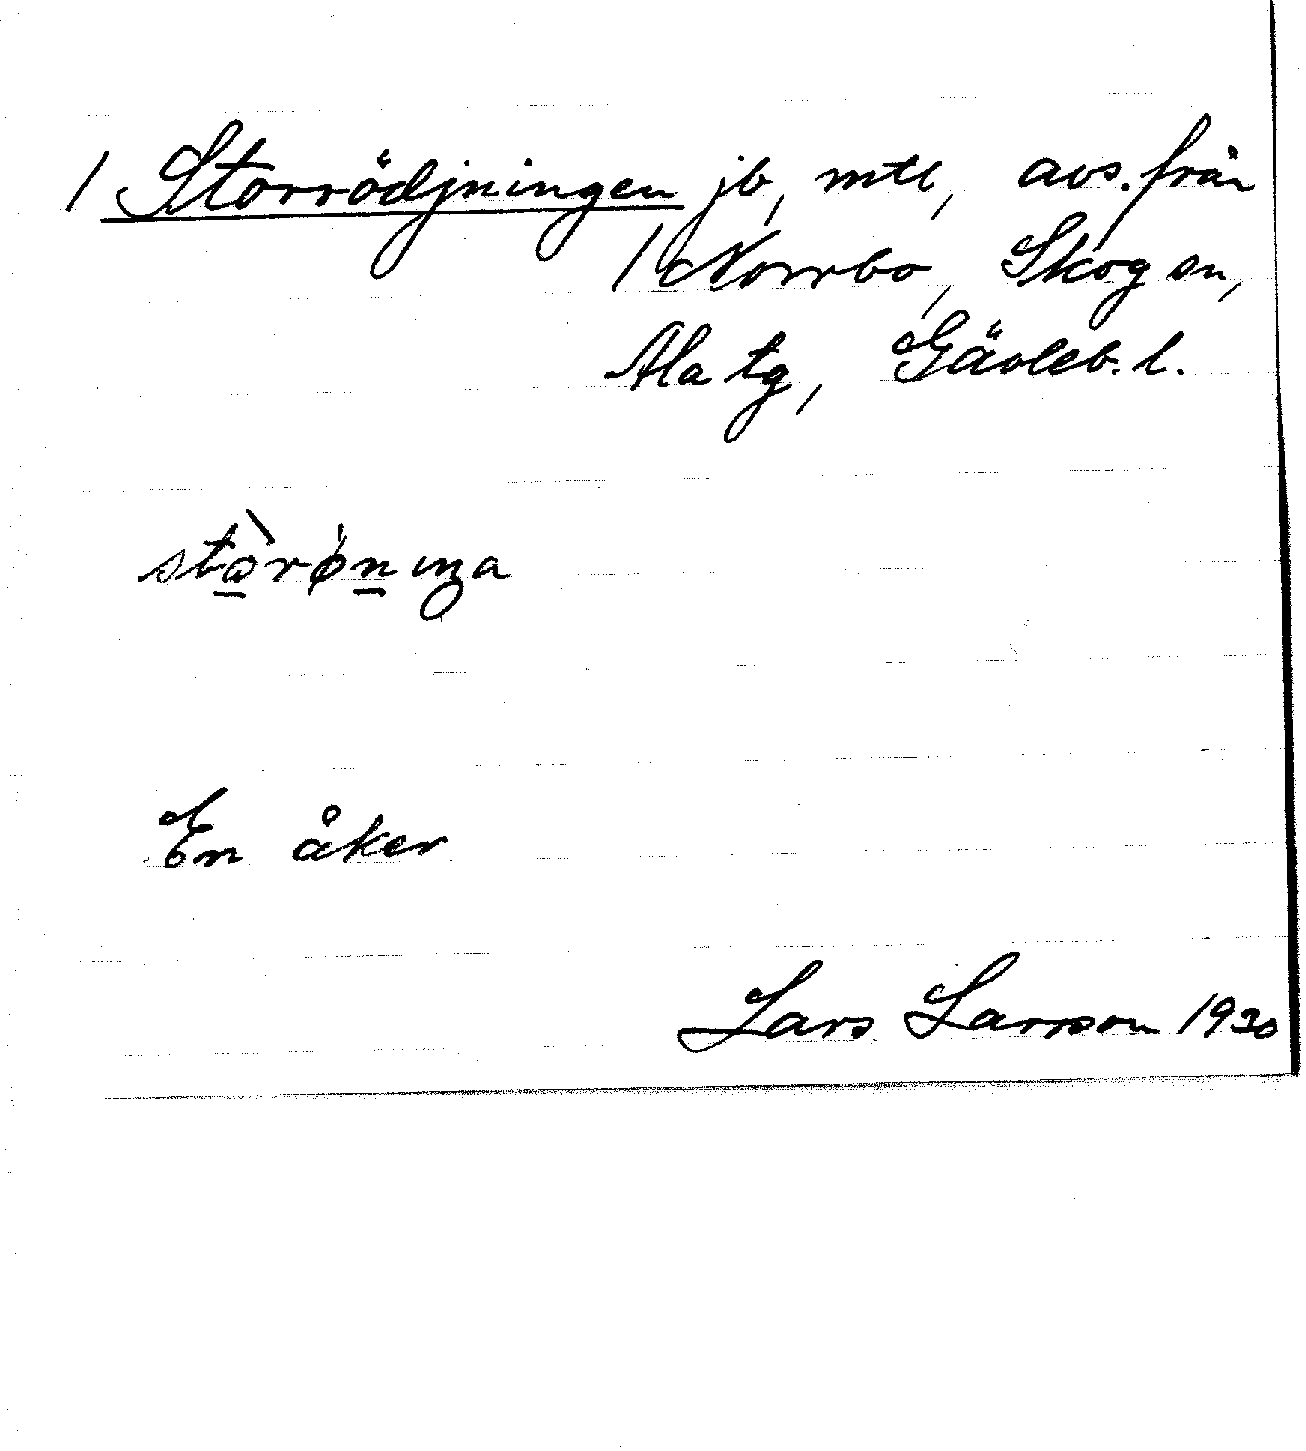 / Storrödjningen jb, mtl, avs. från
/ Norrbo, Skog sn,
Ala tg, Gävleb. l.
En åker
Lars Larsson 1930